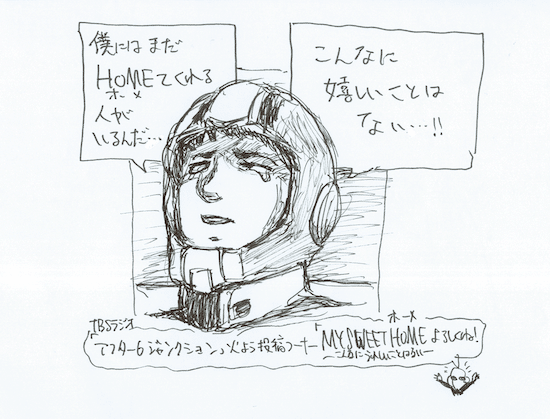 僕には まだ
HOMEてくれる
ホーメ
人が
いるんだ…
こんなに
嬉しいことは
ない…!!
TBSラジオ
ホーメ
「アフター6ジャンクション」火よう投稿コーナー「MY SWEET HOME よろしくね!
〜こんなにうれしいことはない〜